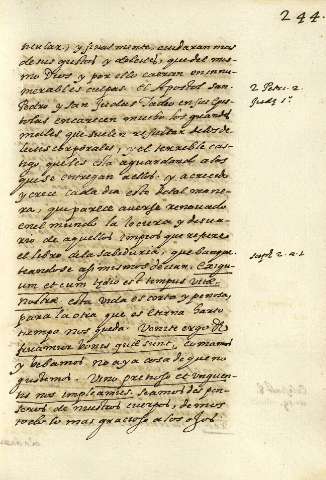 244.
ticular, y finalmente, cuidaran mas
de sus gustos y deleites, que del mis
mo Dios y por ello caeran en innu
merables culpas. El Apostol san
Pedro y san Judas Tadeo en sus Epis
tolas encarecen mucho los grandes
males que suelen resultar delos de
leites corporales, y el terrible cas
tigo que les esta aguardando a los
que se entregan a ellos. y a crecido
y crece cada dia esto de tal mane
ra, que parece averse renovado
en el mundo la locura y desva
rio de aquellos impios que refiere
el libro de la sabeduria, que
a si mismos decian. Exigu
um et cum tedio est tempus vite
nostre esta vida es corta y penosa,
para la otra que es eterna harto
tiempo nos queda. Venite ergo et
fruamur bonis que sunt, comamos
y bebamos no aya cosa de que no
gustemos. Vino precioso et unguen
tis nos impleamus. seamos
de nuestros cuerpos, demos
todo lo mas gracioso a los ojos.
2 Petri. 2
Jude 1.
sap. 2. a. 1